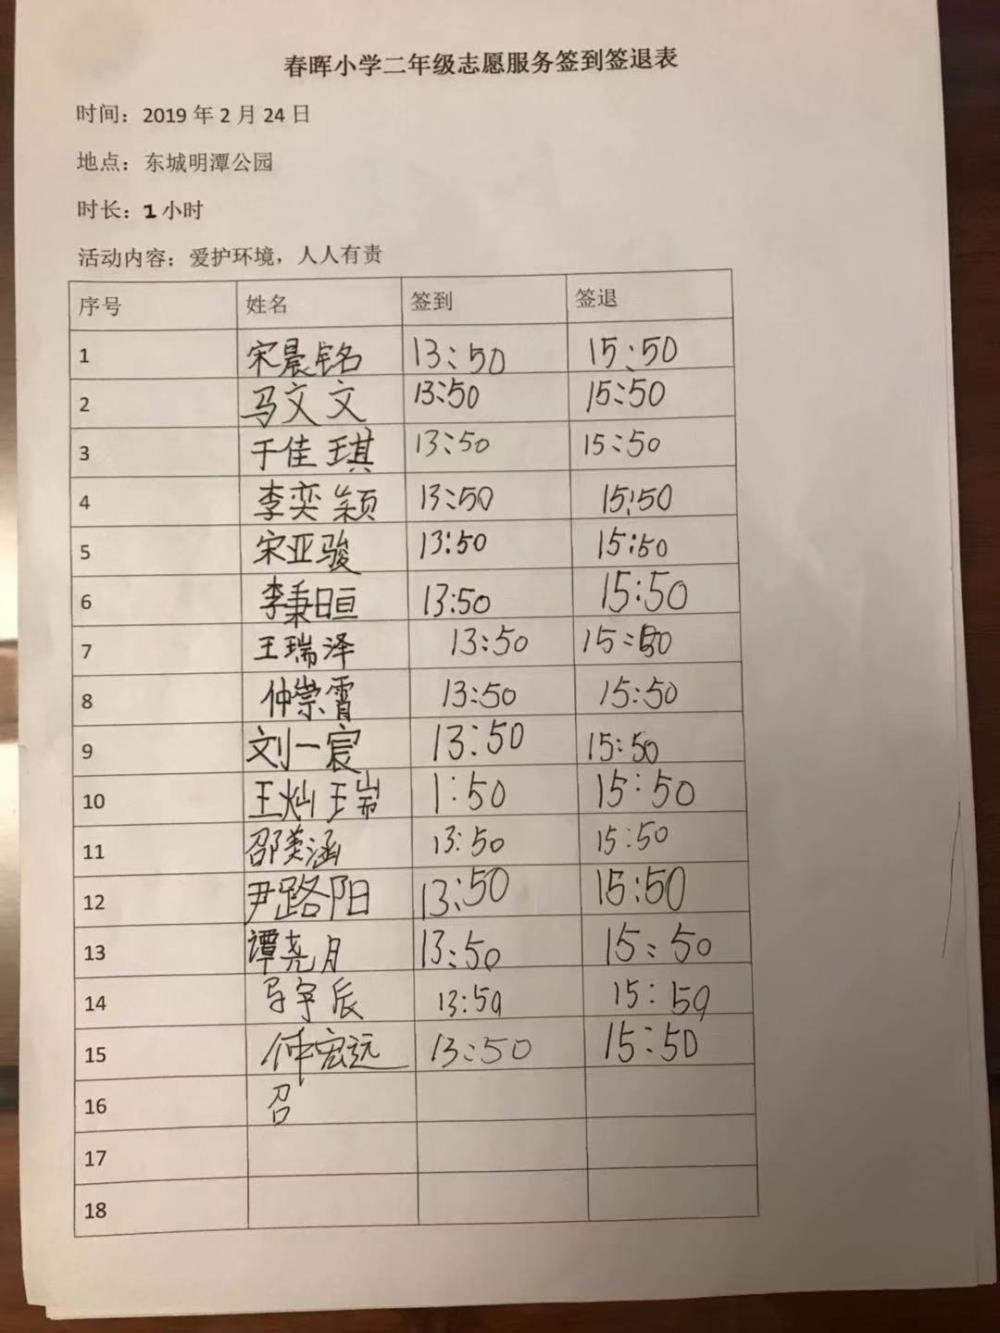 春晖小学二年级志愿服务签到签退表
时间：2019 年 2 月 24 日
地点：东城明潭公园
时长：1 小时
活动内容：爱护环境，人人有责
序号 姓名 签到 签退
1 宋晨铭 13:50 15:50
2 马文文 13:50 15:50
3 于佳琪 13:50 15:50
4 李奕颖 13:50 15:50
5 宋亚骏 13:50 15:50
6 李秉晅 13:50 15:50
7 王瑞泽 13:50 15:50
8 仲崇霄 13:50 15:50
9 刘一宸 13:50 15:50
10 王灿瑞 1:50 15:50
11 邵美涵 13:50 15:50
12 尹路阳 13:50 15:50
13 谭尧月 13:50 15:50
14 马宇辰 13:50 15:50
15 仲宏远 13:50 15:50
16 召
17
18